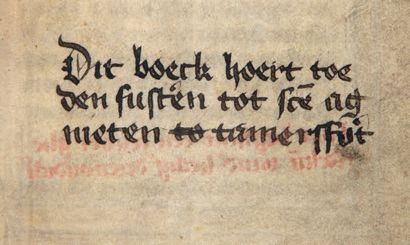 Dit boeck hoert toe
den susteren tot scē ag
nieten to tamersffort